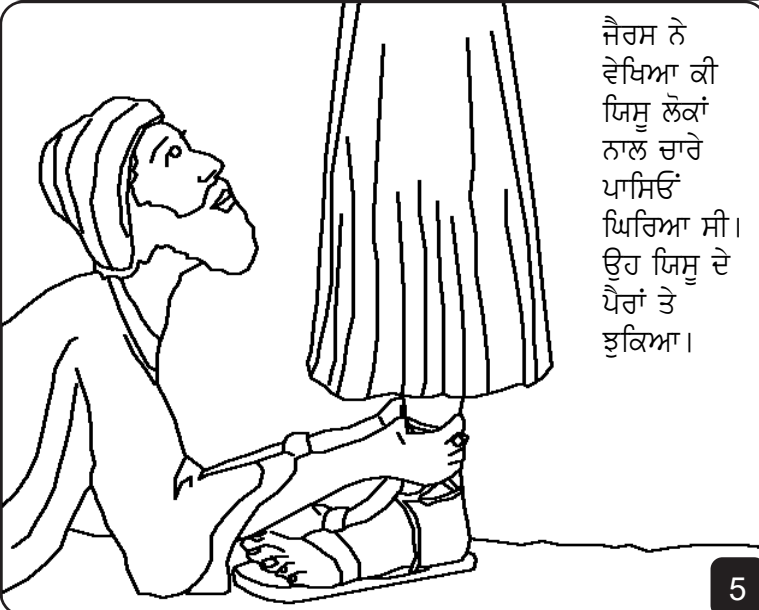 ਜੈਰਸ ਨੇ
ਵੇਖਿਆ ਕੀ
ਯਿਸੂ ਲੋਕਾਂ
ਨਾਲ ਚਾਰੇ
ਪਾਸਿਓਂ
ਘਿਰਿਆ ਸੀ।
ਉਹ ਯਿਸੂ ਦੇ
ਪੈਰਾਂ ਤੇ
ਝੁਕਿਆ।
5